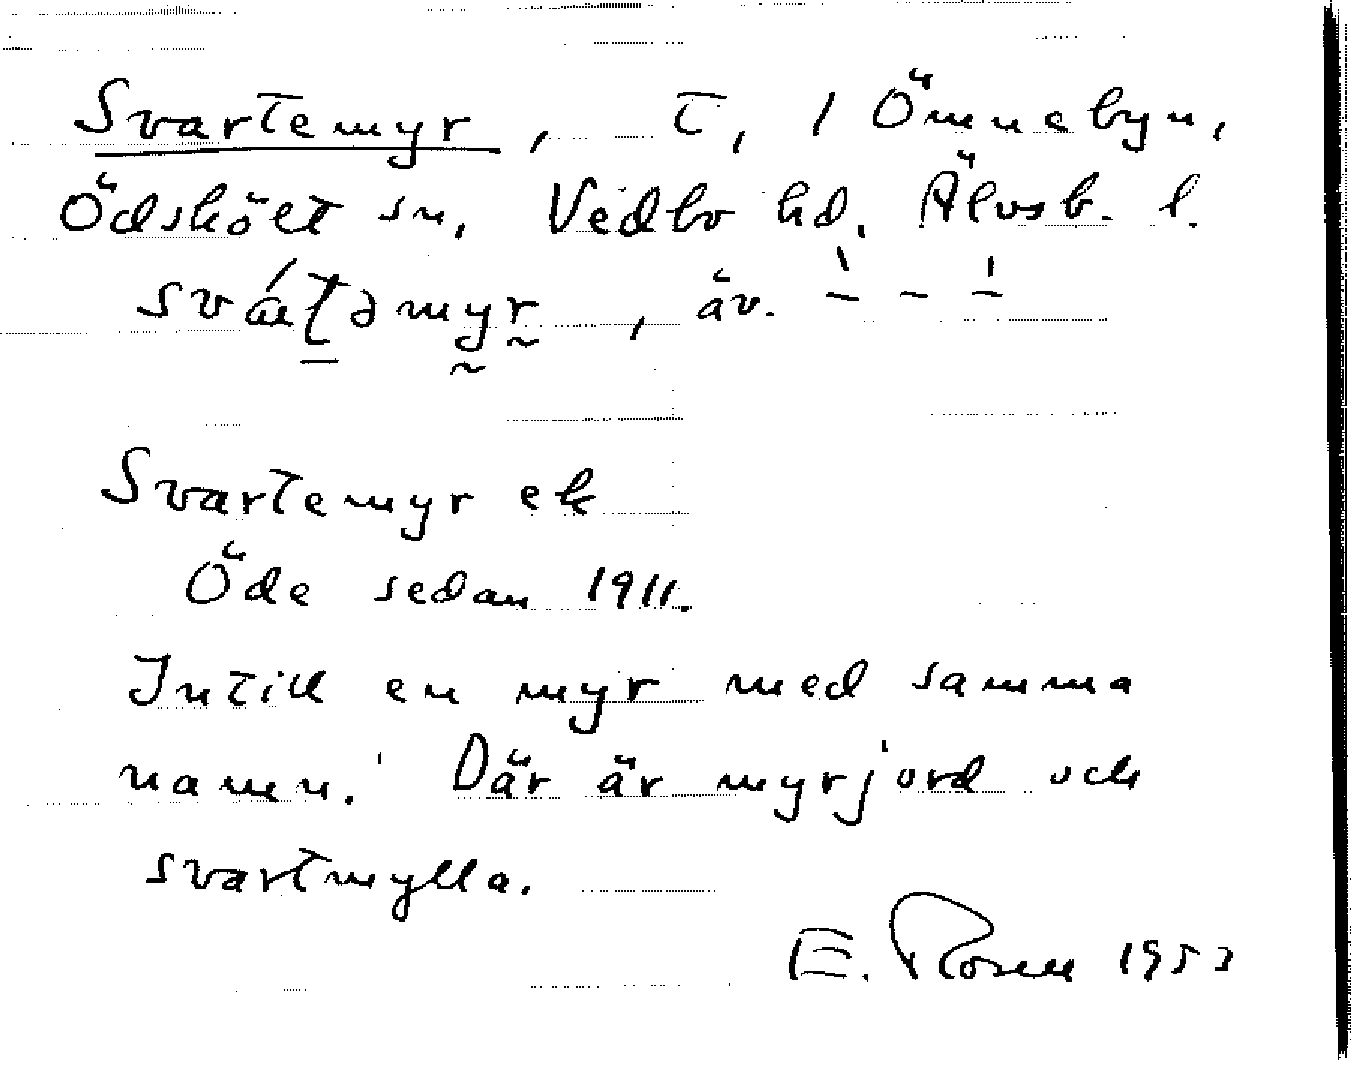 Svartemyr, t, / Ömnebyn,
Ödskölt sn, Vedbo hd. Älvsb. l.
, äv.
Svartemyr ek
Öde sedan 1911.
Intill en myr med samma
namn. Där är myrjord och
svartmylla.
E. Rosell 1953